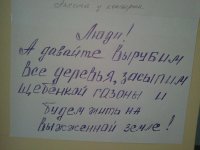 Люди!
А давайте вырубим
все деревья, засыпим
щебёнкой газоны и
будем жить на
выжженной земле!